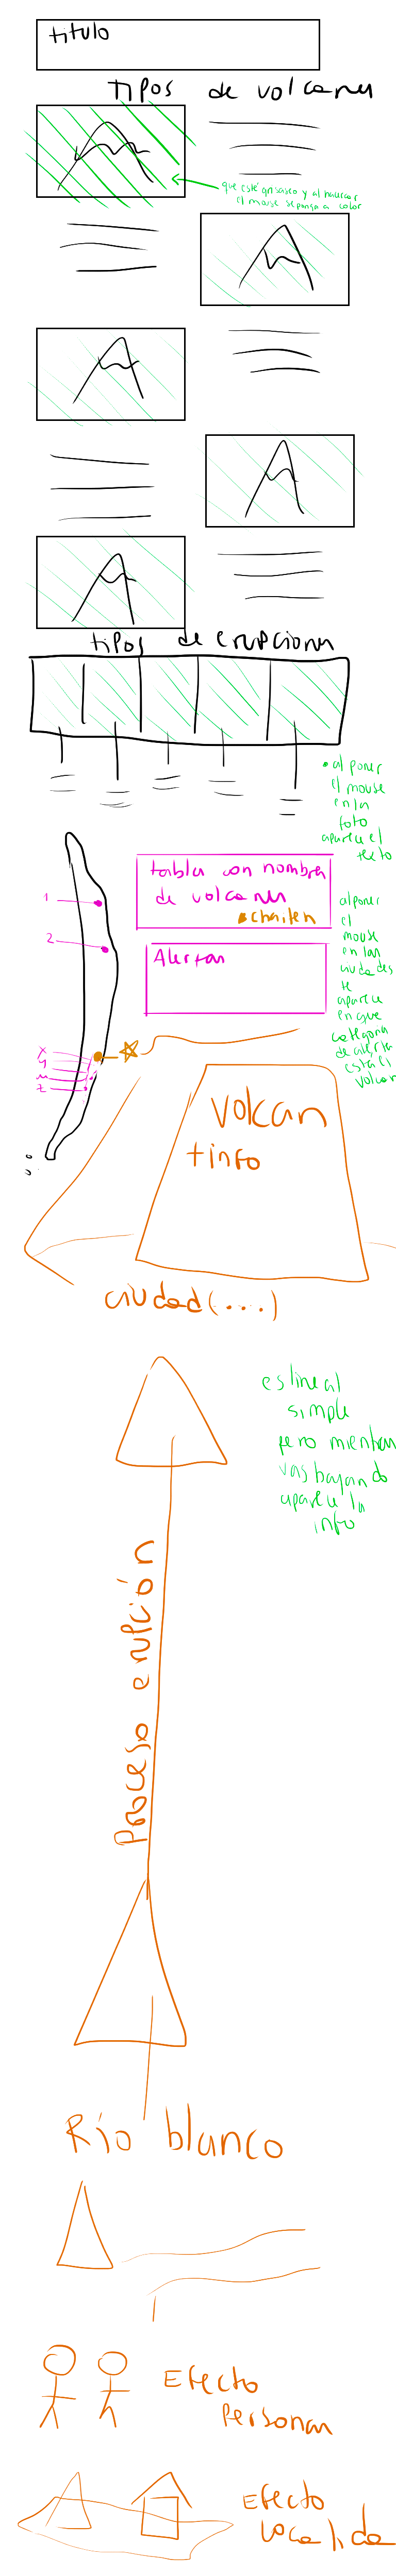 titulo
tipos de volcanes
que esté grisaseo y al hacercar
el mouse se ponga a color
tipos de erupciones
• al poner
el mouse
en la
foto
aparece el
texto
1
tabla con nombres
de volcanes
chaiten
2
Alertas
al poner
el
mouse
en las
ciudades
te
aparece
en que
categoria
de alerta
está el
volcan
x
y
z
volcan
+ info
ciudad (....)
es lineal
simple
pero mientras
vas bajando
aparece la
info
Proceso erupción
Río blanco
Efecto
Personas
Efecto
localidad